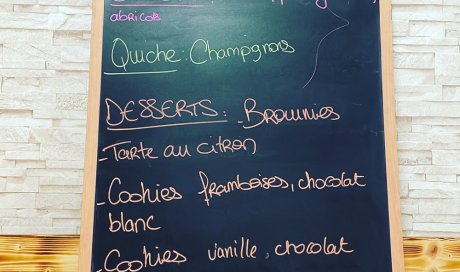 abricots
Quiche : Champignons
DESSERTS : - Brownies
- Tarte au citron
- Cookies framboises, chocolat
blanc
- Cookies vanille, chocolat